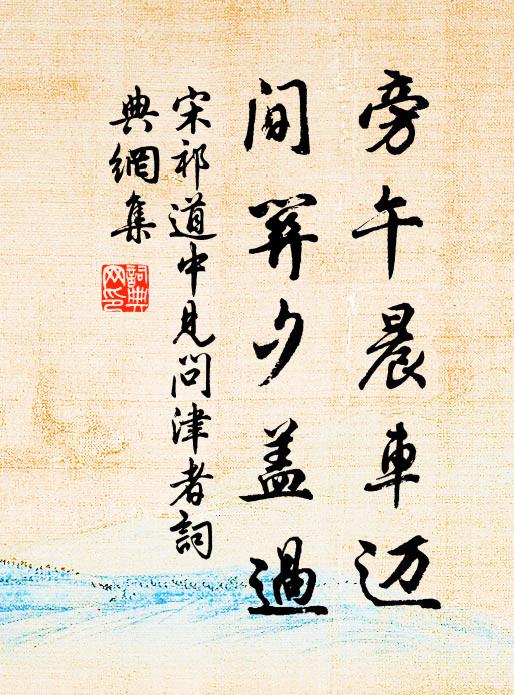 旁午晨車迈
間關夕盖過
宋祁道中見問津者詞
典網集
詞典
网印